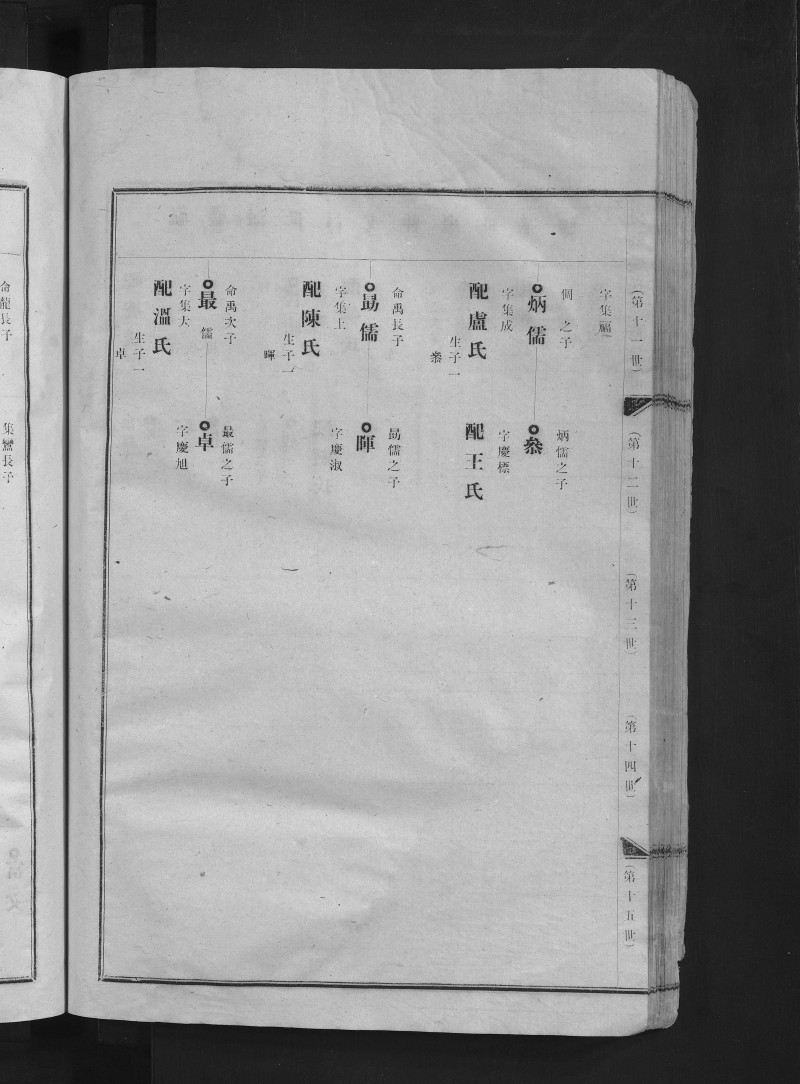 (第十一世)
(第十二世)
(第十三世)
(第十四世)
(第十五世)
字集福
侗之子
炳儒
字集成
配盧氏
生子一
炳儒之子
字慶標
配王氏
命禹長子
勗儒
字集上
配陳氏
生子一
暉
勗儒之子
暉
字慶淑
命禹次子
最儒
字集大
配溫氏
生子一
卓
最儒之子
卓
字慶旭
命龍長子
集鸞長子